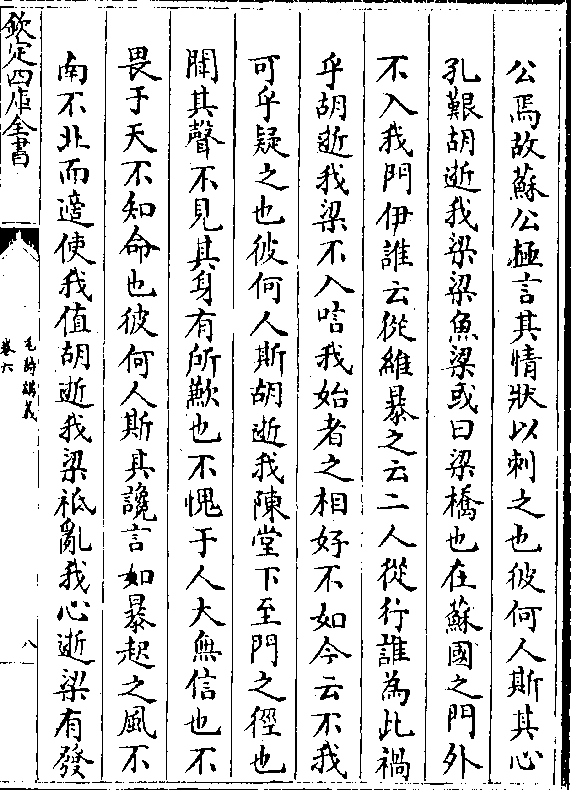 公焉故蘇公極言其情狀以刺之也彼何人斯其心
孔艱胡逝我梁梁魚梁或曰梁橋也在蘇國之門外
不入我門伊誰云從維暴之云二人從行誰為此禍
乎胡逝我梁不入唁我始者之相好不如今云不我
可乎疑之也彼何人斯胡逝我陳堂下至門之徑也
聞其聲不見其身有所歉也不愧于人大無信也不
畏于天不知命也彼何人斯其讒言如暴起之風不
南不北而適使我值胡逝我梁祗亂我心逝梁有發
欽定四庫全書
毛詩講義
卷六
八